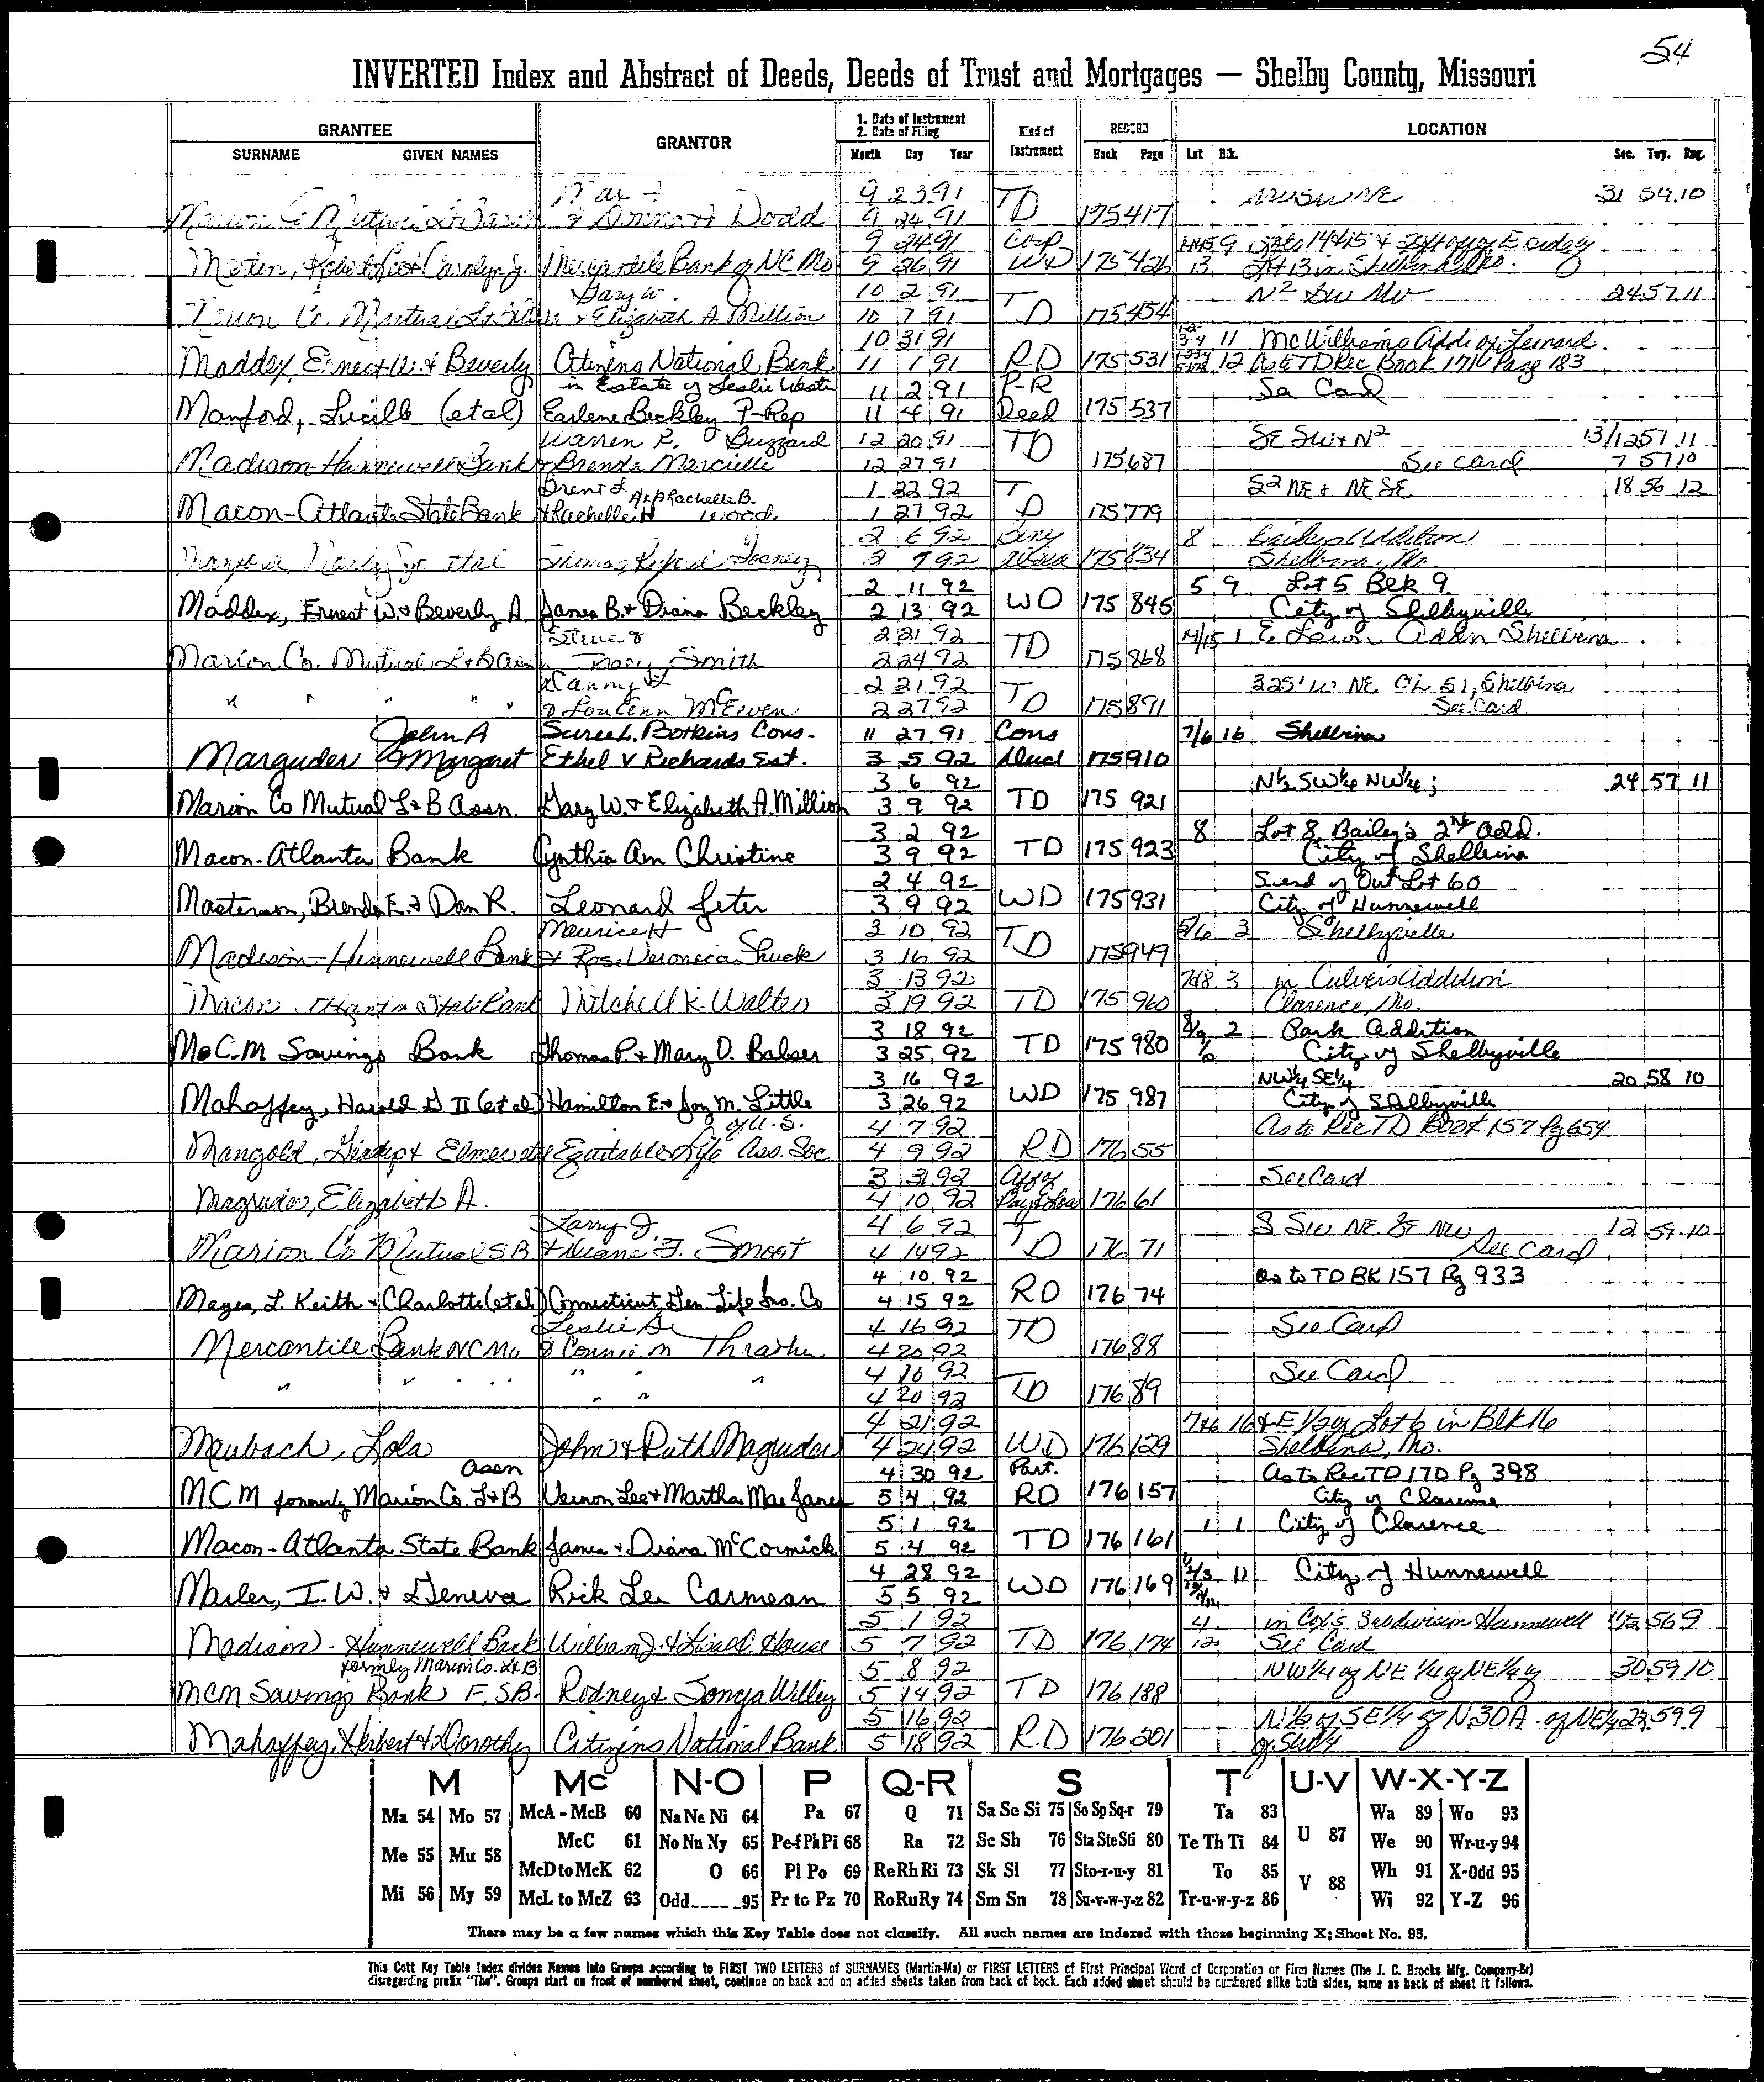 54
INVERTED Index and Abstract of Deeds, Deeds of Trust and Mortgages — Shelby County, Missouri
GRANTEE GRANTOR 1. Date of Instrument 2. Date of Filing Kind of Instrument RECORD LOCATION
SURNAME GIVEN NAMES Month Day Year Book Page Lot Blk. Sec. Twp. Rng.
9 23 91 31 59 10
Marion Co Mutual & Donna Dodd 9 24 91 TD 175 417
9 24 91 Corp 9 Lots 14 & 15 &
Martin, Robert Lee & Carolyn J. Mercantile Bank of NC Mo 9 26 91 WD 175 426 13 Lot 13 in Shelbina Mo.
Gary W. 10 2 91 N2 SW NW 24 57 11
Marion Co. Mutual & Elizabeth A Million 10 7 91 TD 175 454
10 31 91 11 McWilliams Addi of Leonard
Maddex, Ernest W. & Beverly Citizens National Bank 11 1 91 RD 175 531 12 As to TD Rec Book 170 Page 183
in Estate of Leslie 11 2 91 P-R See Card
Manford, Lucille (etal) Earlene Beckley P-Rep 11 4 91 Deed 175 537
Warren R. Buzzard 12 20 91 SE SW & N2 13/12 57 11
Madison-Hunnewell Bank & Brenda Marcielle 12 27 91 TD 175 687 See card 7 57 10
Brent L AKA Rachelle B. 1 22 92 S2 NE & NE SE 18 56 12
Macon-Atlanta State Bank & Rachelle H Wood 1 27 92 TD 175 779
2 6 92 Beny 8 Baileys Addition
Manford, Nancy Jo etal Thomas 2 7 92 175 834 Shelbina, Mo
2 11 92 5 9 Lot 5 Blk 9
Maddex, Ernest W. & Beverly A. James B. & Diana Beckley 2 13 92 WD 175 845 City of Shelbyville
Steve & 2 21 92 14/15 1 E. Lawn Addn Shelbina
Marion Co. Mutual L & B Assn Tracy Smith 2 24 92 TD 175 868
Danny L 2 21 92 325' W NE OL 51, Shelbina
" " " " " & Lou Ann McEwen 2 27 92 TD 175 891 See Card
John A Botkins Cons. 11 27 91 Cons 7/6 16 Shelbina
Marguder & Margaret Ethel V Richards Est. 3 5 92 Deed 175 910
3 6 92 N½ SW¼ NW¼; 24 57 11
Marion Co Mutual L & B Assn. Gary W. & Elizabeth A. Million 3 9 92 TD 175 921
3 2 92 8 Lot 8 Bailey's 2nd Add.
Macon-Atlanta Bank Cynthia Ann Christine 3 9 92 TD 175 923 City of Shelbina
2 4 92 S. end of Out Lot 60
Masterson, Brenda E. & Dan R. Leonard Jeter 3 9 92 WD 175 931 City of Hunnewell
Maurice H 3 10 92 5/6 3 Shelbyville
Madison-Hunnewell Bank & Rose Veronica Shuck 3 16 92 TD 175 949
3 13 92 7&8 3 in Culver's Addition
Macon Atlanta State Bank Mitchell K. Walter 3 19 92 TD 175 960 Clarence, Mo.
3 18 92 2 Park Addition
MCM Savings Bank Thomas P. & Mary D. Balser 3 25 92 TD 175 980 City of Shelbyville
3 16 92 NW¼ SE¼ 20 58 10
Mahaffey, Harold G II (et al) Hamilton E. & Joy M. Little 3 26 92 WD 175 987 City of Shelbyville
of U.S. 4 7 92 As to Rec TD Book 157 Pg 654
Mangold, & Elmer Equitable Life Ass. Soc 4 9 92 RD 176 55
3 31 92 See Card
Magruder, Elizabeth A. 4 10 92 176 61
Larry J. 4 6 92 S SW NE SE NW 12 59 10
Marion Co Mutual S B & Diane F. Smoot 4 14 92 TD 176 71 See Card
4 10 92 As to TD BK 157 Pg 933
Mayes, L. Keith & Charlotte (etal) Connecticut Gen. Life Ins. Co 4 15 92 RD 176 74
Leslie 4 16 92 See Card
Mercantile Bank NC Mo & Connie M Thrasher 4 20 92 TD 176 88
" " " " " 4 16 92 See Card
" " 4 20 92 TD 176 89
4 21 92 7&6 16 & E 1/2 of Lot 6 in Blk 16
Maubach, Lola John & Ruth Magruder 4 24 92 WD 176 129 Shelbina, Mo.
Assn 4 30 92 Part. As to Rec TD 170 Pg 398
MCM formerly Marion Co. L & B Vernon Lee & Martha Mae Janes 5 4 92 RD 176 157 City of Clarence
5 1 92 1 1 City of Clarence
Macon-Atlanta State Bank James & Diana McCormick 5 4 92 TD 176 161
4 28 92 11 City of Hunnewell
Marler, I. W. & Geneva Rick Lee Carmean 5 5 92 WD 176 169
5 1 92 4 in Cox's Subdivision Hunnewell 56 9
Madison-Hunnewell Bank William J. & Lisa D. House 5 7 92 TD 176 174 12 See Card
formly Marion Co. L & B 5 8 92 NW 1/4 of NE 1/4 of NE 1/4 30 59 10
MCM Savings Bank F.S.B. Rodney & Sonja Willey 5 14 92 TD 176 188
5 16 92 N 1/2 of SE 1/4 of N 30 A. of NE 1/4 59 9
Mahaffey, Herbert & Dorothy Citizens National Bank 5 18 92 RD 176 201 of SW 1/4
M Mc N-O P Q-R S T U-V W-X-Y-Z
Ma 54 Mo 57 McA - McB 60 Na Ne Ni 64 Pa 67 Q 71 Sa Se Si 75 So Sp Sq-r 79 Ta 83 U 87 Wa 89 Wo 93
Me 55 Mu 58 McC 61 No Nu Ny 65 Pe-f Ph Pi 68 Ra 72 Sc Sh 76 Sta Ste Sti 80 Te Th Ti 84 We 90 Wr-u-y 94
McD to McK 62 O 66 Pl Po 69 Re Rh Ri 73 Sk Sl 77 Sto-r-u-y 81 To 85 V 88 Wh 91 X-Odd 95
Mi 56 My 59 McL to McZ 63 Odd_____95 Pr to Pz 70 Ro Ru Ry 74 Sm Sn 78 Su-v-w-y-z 82 Tr-u-w-y-z 86 Wi 92 Y-Z 96
There may be a few names which this Key Table does not classify. All such names are indexed with those beginning X; Sheet No. 95.
This Cott Key Table Index divides Names into Groups according to FIRST TWO LETTERS of SURNAMES (Martin-Ma) or FIRST LETTERS of First Principal Word of Corporation or Firm Names (The J. C. Brocks Mfg. Company-Br)
disregarding prefix "The". Groups start on front of numbered sheet, continue on back and on added sheets taken from back of book. Each added sheet should be numbered alike both sides, same as back of sheet it follows.